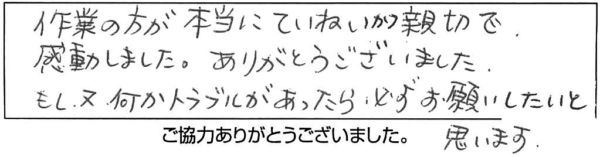 作業の方が本当にていねいかつ親切で、
感動しました。ありがとうございました。
もし又何かトラブルがあったら必ずお願いしたいと
思います。
ご協力ありがとうございました。